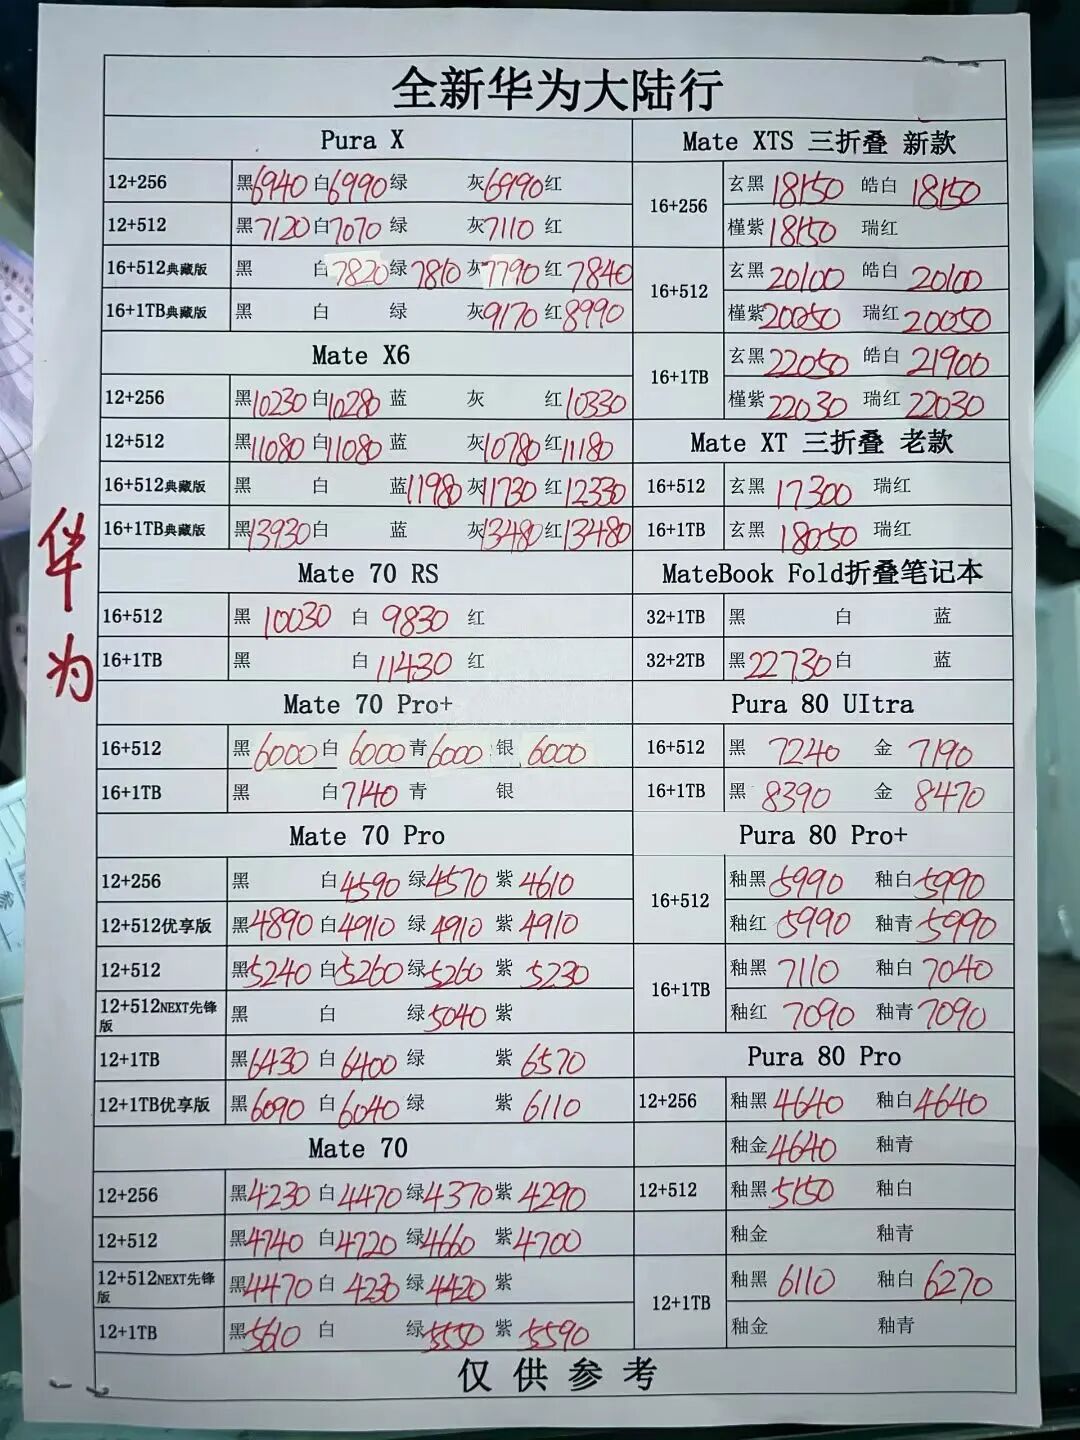 全新华为大陆行
Pura X
12+256 黑6940 白6990 绿 灰6990 红
12+512 黑7120 白7070 绿 灰7110 红
16+512典藏版 黑 白7820 绿7810 灰7790 红7840
16+1TB典藏版 黑 白 绿 灰9170 红8990
Mate X6
12+256 黑10230 白10280 蓝 灰 红10330
12+512 黑11080 白11080 蓝 灰10780 红11180
16+512典藏版 黑 白 蓝11980 灰11730 红12330
16+1TB典藏版 黑13930 白 蓝 灰13480 红13480
Mate 70 RS
16+512 黑 10030 白 9830 红
16+1TB 黑 白11430 红
Mate 70 Pro+
16+512 黑6000 白6000 青6000 银6000
16+1TB 黑 白7140 青 银
Mate 70 Pro
12+256 黑 白4590 绿4570 紫4610
12+512优享版 黑4890 白4910 绿4910 紫4910
12+512 黑5240 白5260 绿5260 紫5230
12+512NEXT先锋版 黑 白 绿5040 紫
12+1TB 黑6430 白6400 绿 紫6570
12+1TB优享版 黑6090 白6040 绿 紫6110
Mate 70
12+256 黑4230 白4470 绿4370 紫4290
12+512 黑4740 白4720 绿4660 紫4700
12+512NEXT先锋版 黑4470 白4230 绿4420 紫
12+1TB 黑5610 白 绿5550 紫5590
Mate XTS 三折叠 新款
16+256 玄黑18150 皓白18150
槿紫18150 瑞红
16+512 玄黑20100 皓白20100
槿紫20050 瑞红20050
16+1TB 玄黑22050 皓白21900
槿紫22030 瑞红22030
Mate XT 三折叠 老款
16+512 玄黑17300 瑞红
16+1TB 玄黑18050 瑞红
MateBook Fold折叠笔记本
32+1TB 黑 白 蓝
32+2TB 黑22730 白 蓝
Pura 80 UItra
16+512 黑 7240 金 7190
16+1TB 黑 8390 金 8470
Pura 80 Pro+
16+512 釉黑5990 釉白5990
釉红5990 釉青5990
16+1TB 釉黑7110 釉白7040
釉红7090 釉青7090
Pura 80 Pro
12+256 釉黑4640 釉白4640
釉金4640 釉青
12+512 釉黑5150 釉白
釉金 釉青
12+1TB 釉黑6110 釉白6270
釉金 釉青
仅供参考
华为